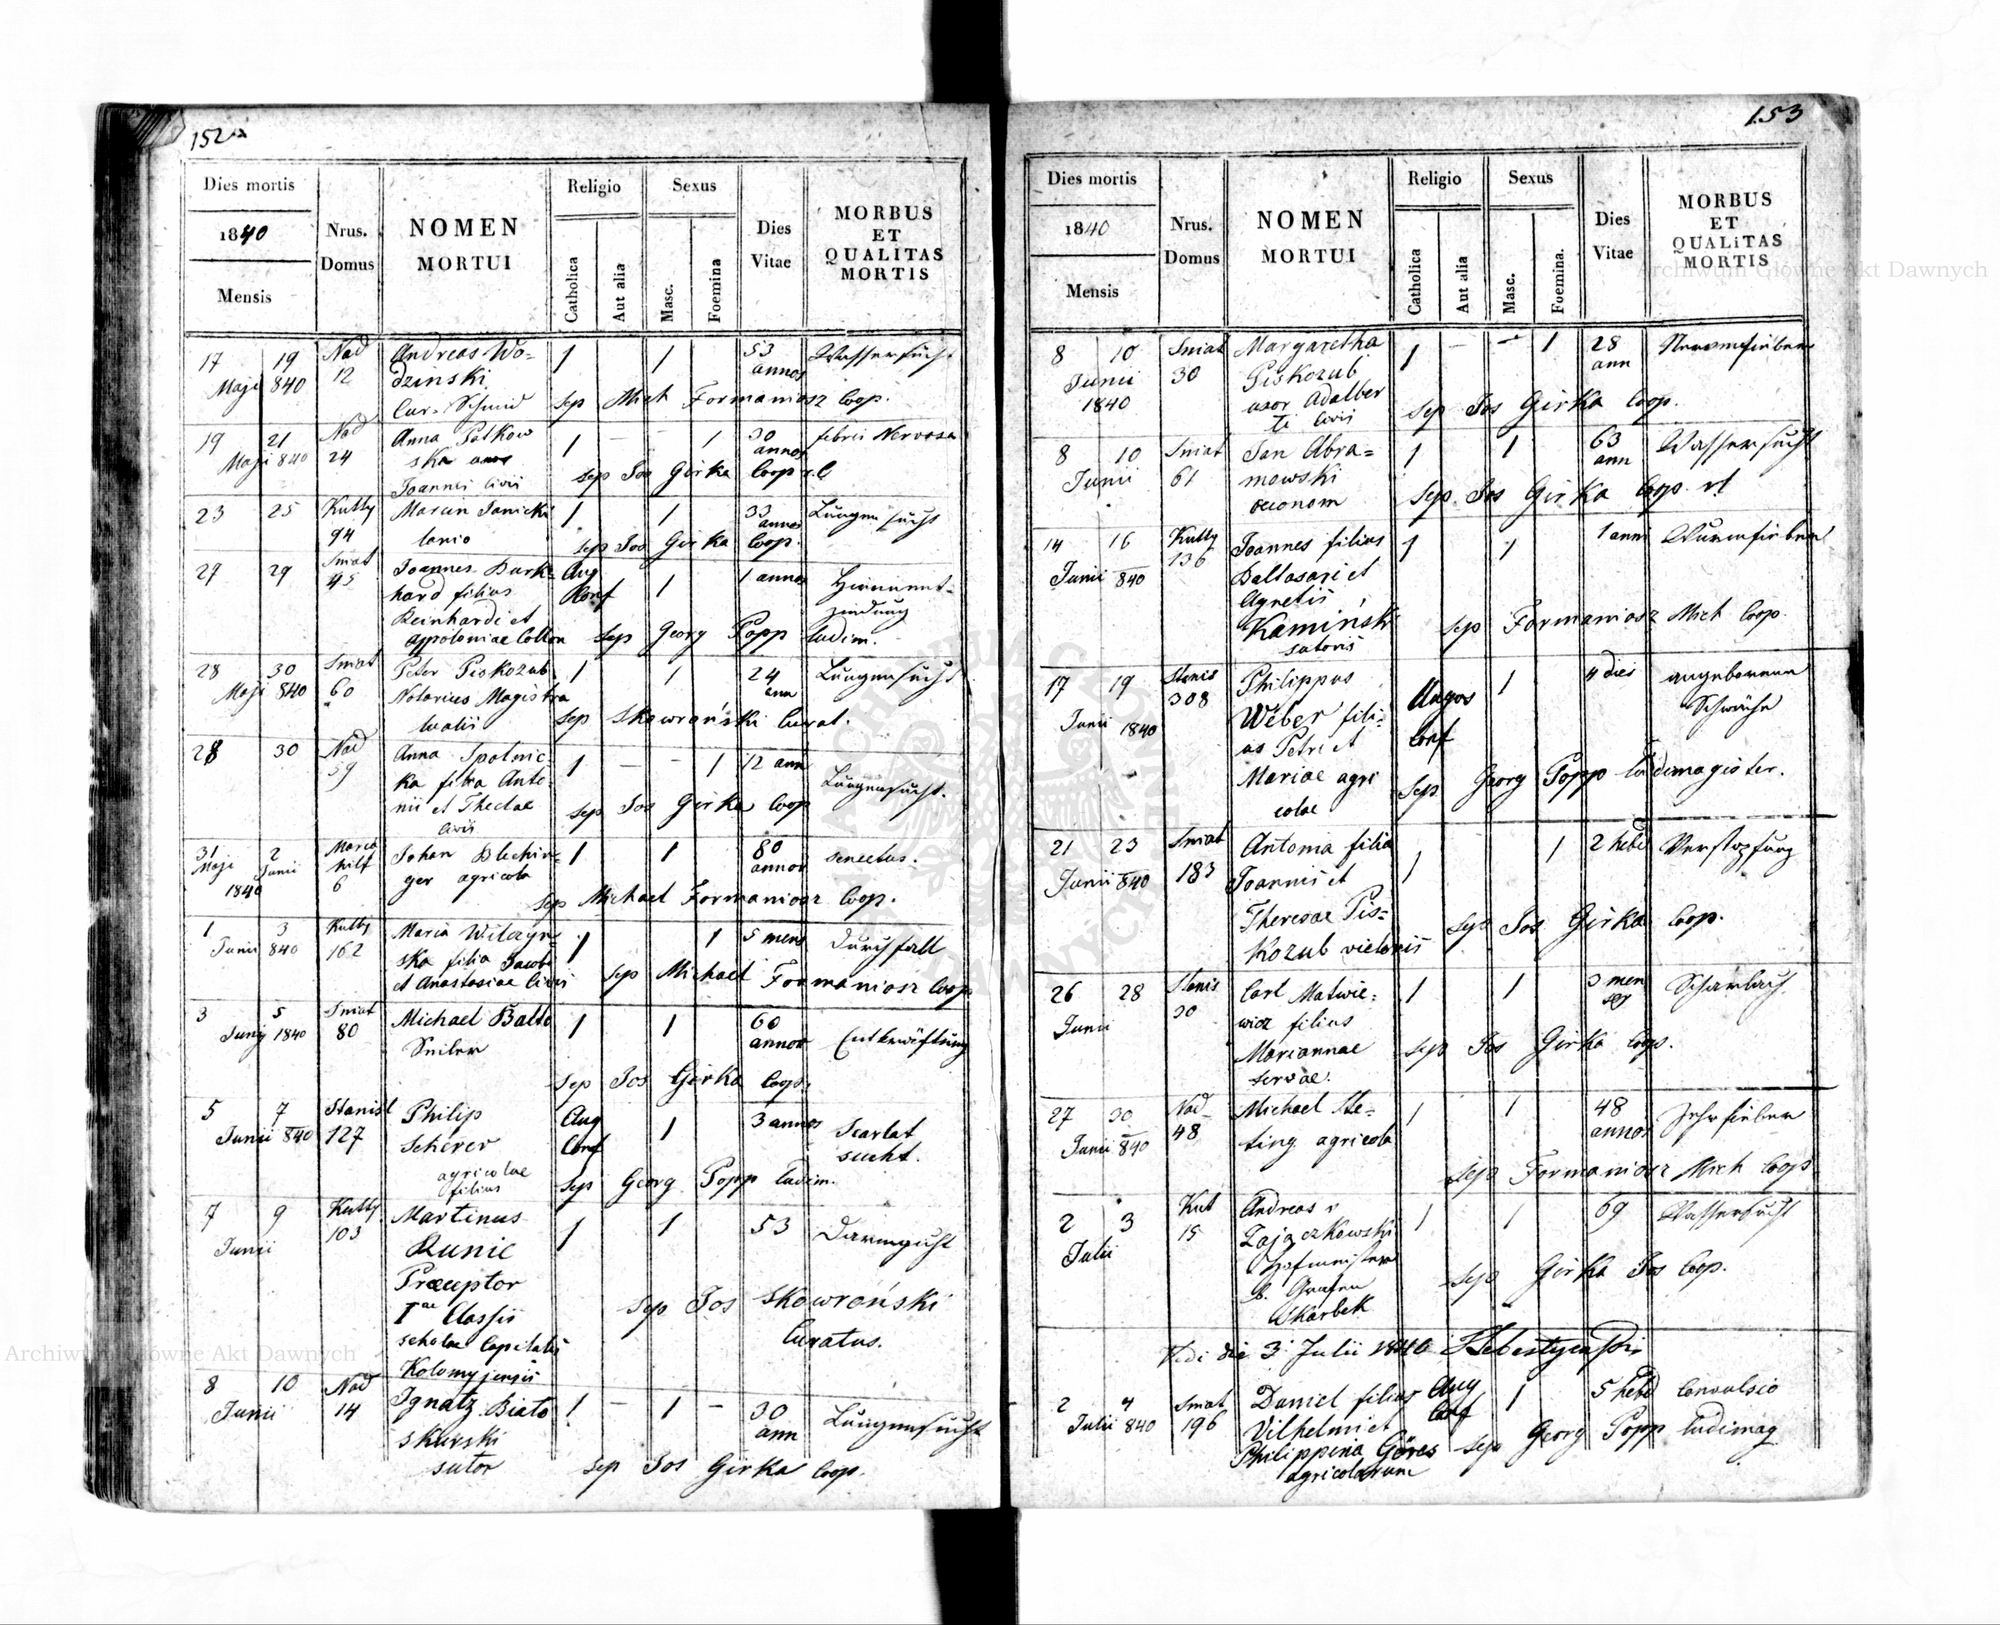 152
Dies mortis
1840
Mensis
Nrus.
Domus
NOMEN
MORTUI
Religio
Catholica
Aut alia
Sexus
Masc.
Foemina
Dies
Vitae
MORBUS
ET
QUALITAS
MORTIS
17 19 Nad Andreas Wo= 1 1 53 Wassersucht
Maji 840 12 dzinski annos
Schmid Sep Mich Formaniosz Coop.
19 21 Nad Anna Polkow 1 — — 1 30 febris Nervosa
Maji 840 24 ska annos
Joannis Civis Sep Jos Girka Coop
23 25 Kutty Marcin Janicki 1 1 33 Lungensucht
94 lanio annos
Sep Jos Girka Coop.
27 29 Sniat Joannes Burk= Aug 1 1 annos Hirnent=
45 hard filius Konf zündung
Reinhardi et
Appoloniae Sep Georg Popp ludim.
28 30 Sniat Peter Piskozub 1 1 24 Lungensucht
Maji 840 60 Notarius Magistra ann
tualis Sep Skowroński Curat.
28 30 Nad Anna Spolnic= 1 — — 1 12 ann Lungensucht.
59 ka filia Anto=
nii et Theclae Sep Jos Girka Coop
Civis
31 2 Maria Johan Blechin= 1 1 80 senectus.
Maji Junii hilf ger agricola annos
1840 6 Sep Michael Formaniosz Coop.
1 3 Kutty Maria Wilczyn= 1 1 5 mens Durchfall
Junii 840 162 ska filia Jacobi
et Anastasiae Civis Sep Michael Formaniosz Coop
3 5 Sniat Michael Balto 1 1 60 Entkräftung
Junij 1840 80 Seiler annos
Sep Jos Girka Coop.
5 7 Stanisl Philip Aug 1 3 annos Scarlat
Junii 840 127 Scherer Conf sucht.
agricolae
filius Sep Georg Popp ludim.
7 9 Kutty Martinus 1 1 53
Junii 103 Runic
Praeceptor
Iae Classis Sep Jos Skowroński
scholae Capitalis Curatus.
Kolomyjensis
8 10 Nad Ignatz Biało 1 — 1 — 30 Lungensucht
Junii 14 skurski ann
sutor Sep Jos Girka Coop.
153
Dies mortis
1840
Mensis
Nrus.
Domus
NOMEN
MORTUI
Religio
Catholica
Aut alia
Sexus
Masc.
Foemina.
Dies
Vitae
MORBUS
ET
QUALiTAS
MORTIS
8 10 Sniat Margaretha 1 — — 1 28 Nervenfieber
Junii 30 Piskozub ann
1840 uxor Adalber
ti Civis Sep Jos Girka Coop.
8 10 Sniat Jan Abra= 1 1 63 Wassersucht
Junii 61 mowski ann
oeconom Sep Jos Girka Coop.
14 16 Kutty Joannes filius 1 1 1 anni Wurmfieber
Junii 840 136 Baltasari et
Agnetis
Kamiński Sep Formaniosz Mich Coop.
sutoris
17 19 Stanis Philippus Augos 1 4 dies angeborene
Junii 1840 308 Weber fili= Conf Schwäche
us Petri et
Mariae agri Sep Georg Popp ludimagister.
colae
21 23 Sniat Antonia filia 1 1 2 hebd Verstopfung
Junii 840 183 Joannis et
Theresae Pis= Sep Jos Girka Coop.
kozub
26 28 Stanis Carl Matwie= 1 1 3 men Scharlach
Junii 30 wicz filius
Mariannae Sep Jos Girka Coop.
servae.
27 30 Nad Michael Ste= 1 1 48 Zehrfieber
Junii 840 48 ting agricola annos
Sep Formaniosz Mich Coop
2 3 Kut Andreas 1 1 69 Wassersucht
Julii 15 Zajączkowski
Hofmeister Sep Girka Jos Coop.
b. Grafen
Skarbek
Vidi die 3 Julii 1840
2 4 Sniat Daniel filius Aug 1 5 hebd Convulsio
Julii 840 196 Vilhelmi et Conf
Philippena Göres Sep Georg Popp ludimag
agricolarum
Archiwum Główne Akt Dawnych
Archiwum Główne Akt Dawnych